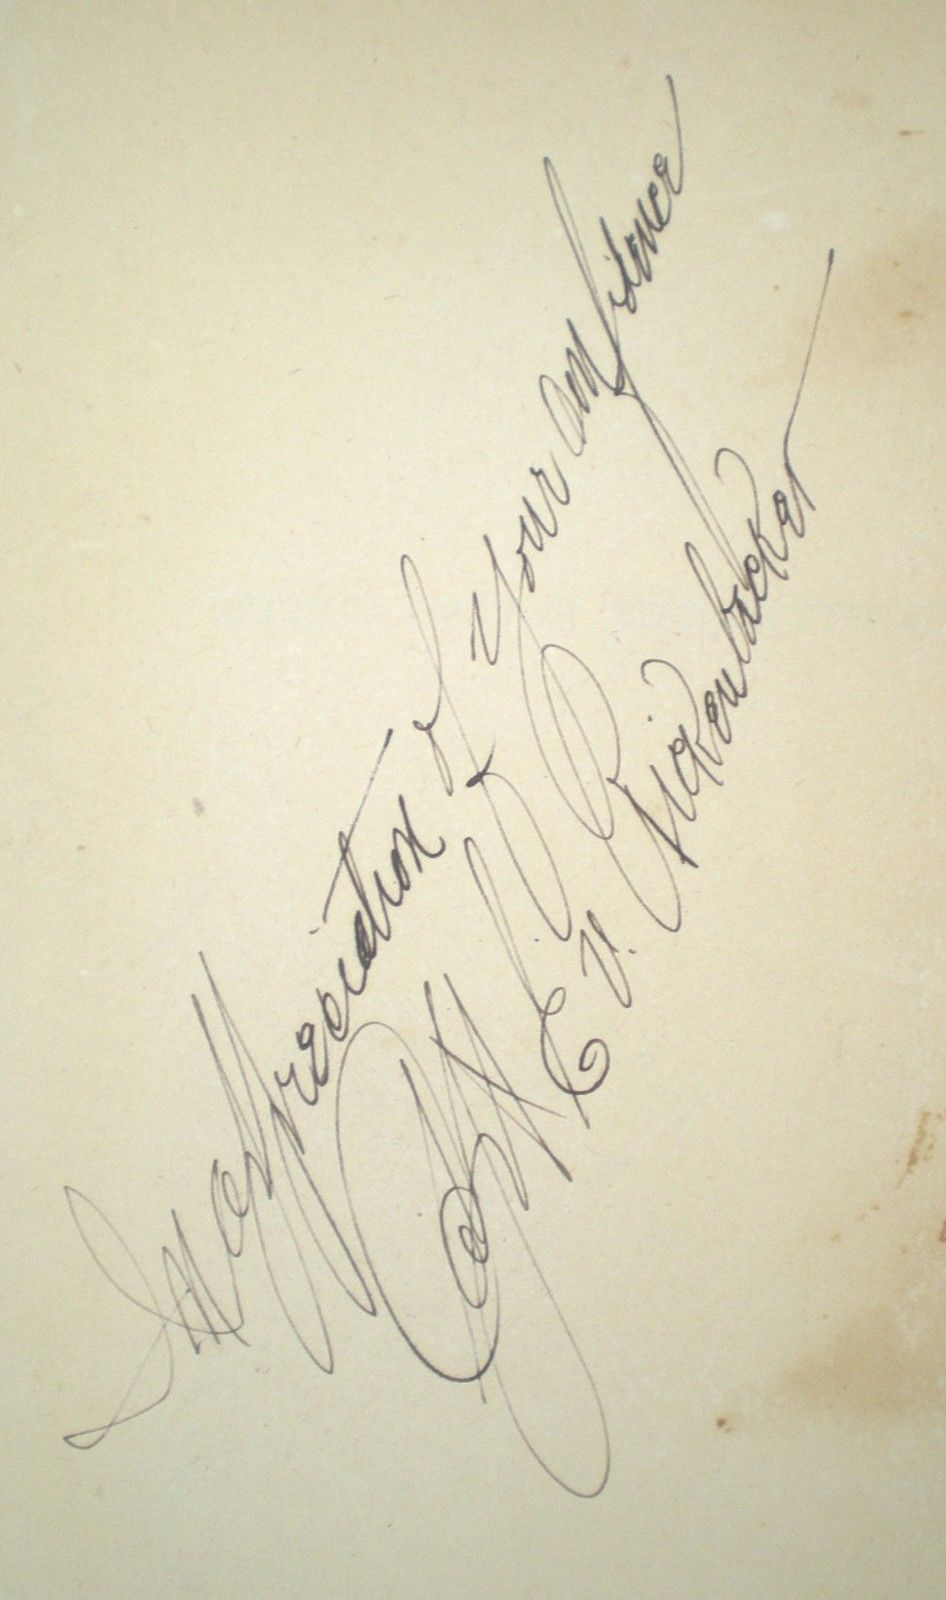 In appreciation of your confidence
Capt. E. V. Rickenbacker